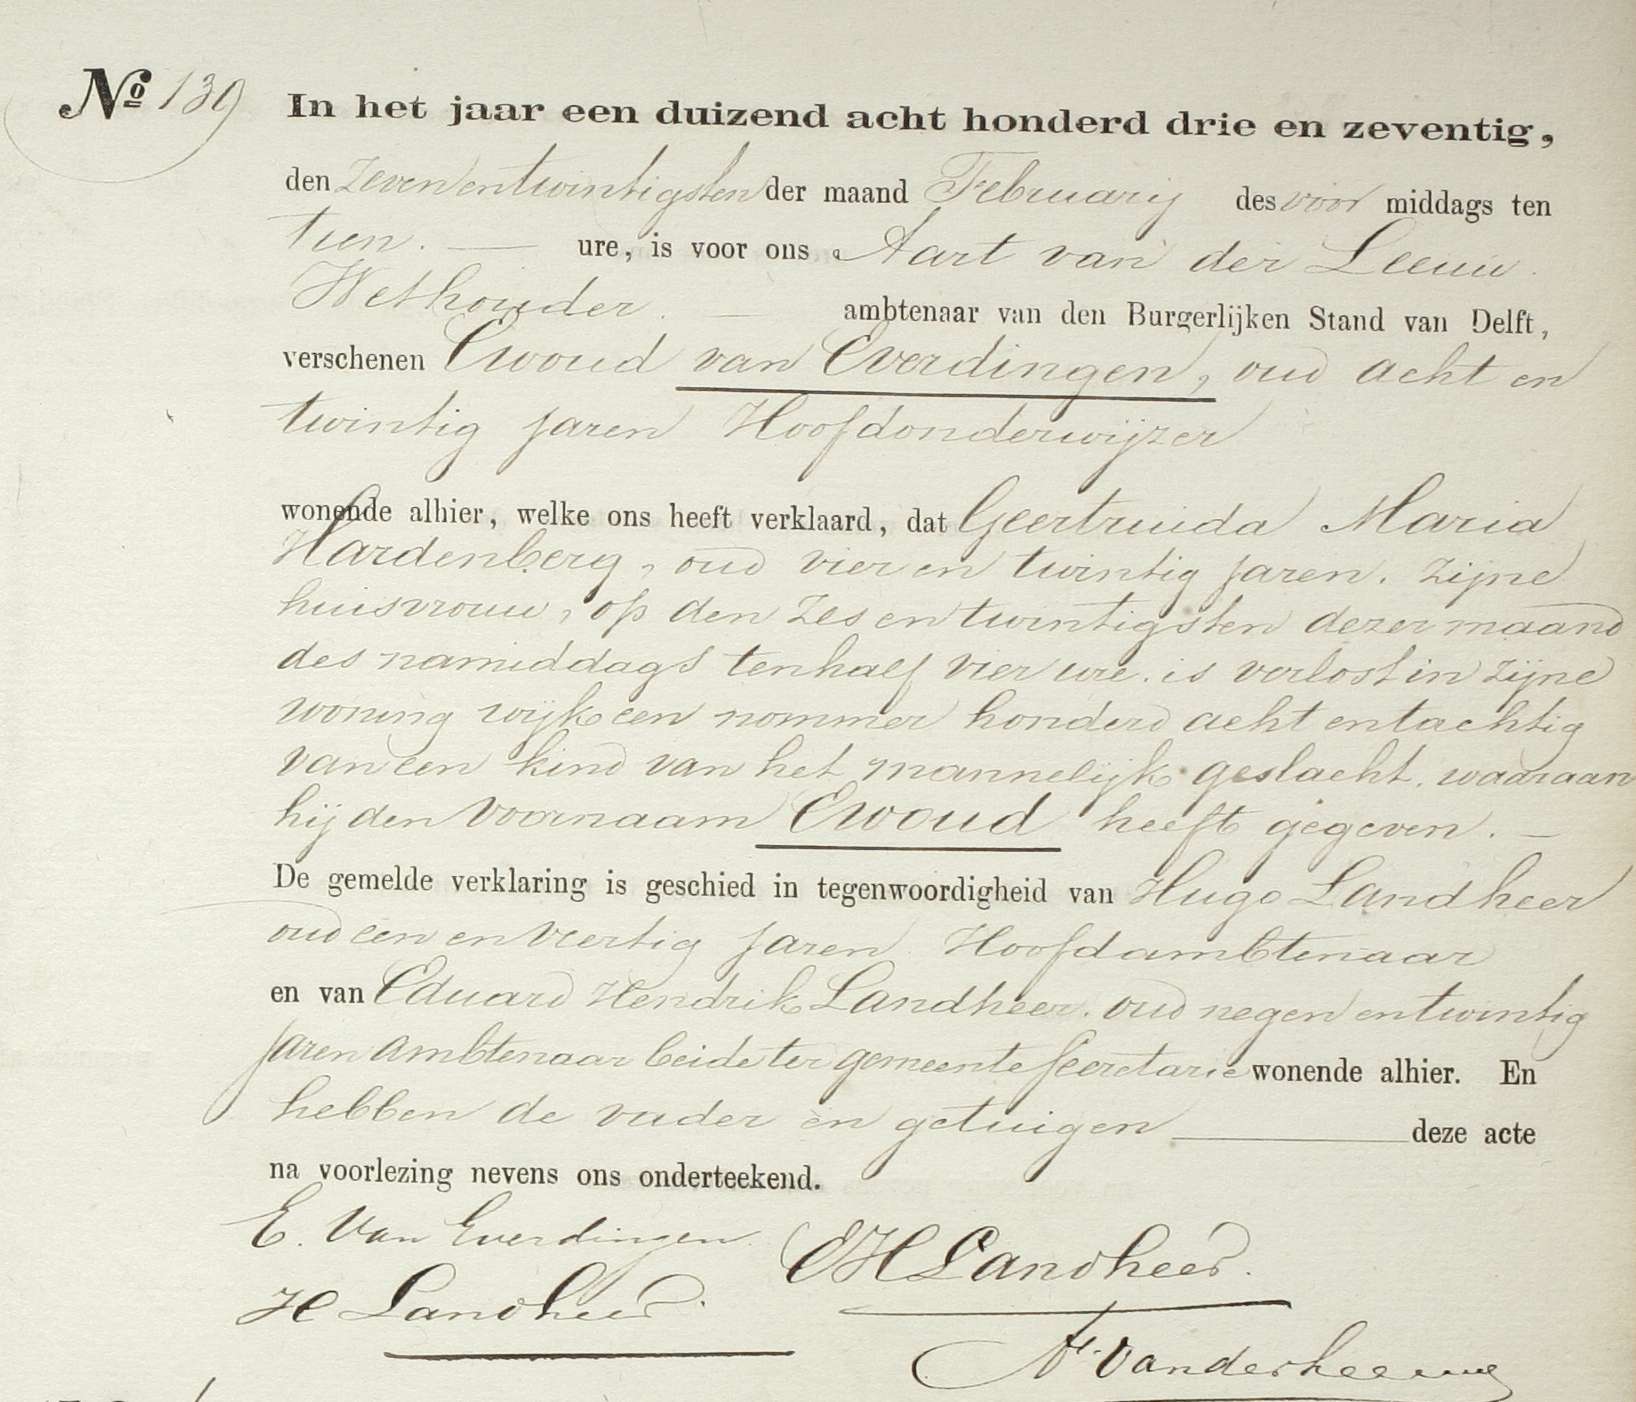 No 139
In het jaar een duizend acht honderd drie en zeventig,
den zevenentwintigsten der maand Februarij des voor middags ten
tien. ure, is voor ons Aart van der Leeuw
Wethouder. ambtenaar van den Burgerlijken Stand van Delft,
verschenen Ewoud van Everdingen, oud acht en
twintig jaren Hoofdonderwijzer
wonende alhier, welke ons heeft verklaard, dat Geertruida Maria
Hardenberg, oud vier en twintig jaren. zijne
huisvrouw, op den zes en twintigsten dezer maand
des namiddags ten half vier ure. is verlost in zijne
woning wijk een nommer honderd acht en tachtig
van een kind van het mannelijk geslacht. waaraan
hij den voornaam Ewoud heeft gegeven.
De gemelde verklaring is geschied in tegenwoordigheid van Hugo Landheer
oud een en veertig jaren Hoofdambtenaar
en van Eduard Hendrik Landheer. oud negen en twintig
jaren ambtenaar beide ter gemeente secretarie wonende alhier. En
hebben de vader en getuigen deze acte
na voorlezing nevens ons onderteekend.
E. van Everdingen.
EH Landheer.
H Landheer.
A. Vanderleeuw